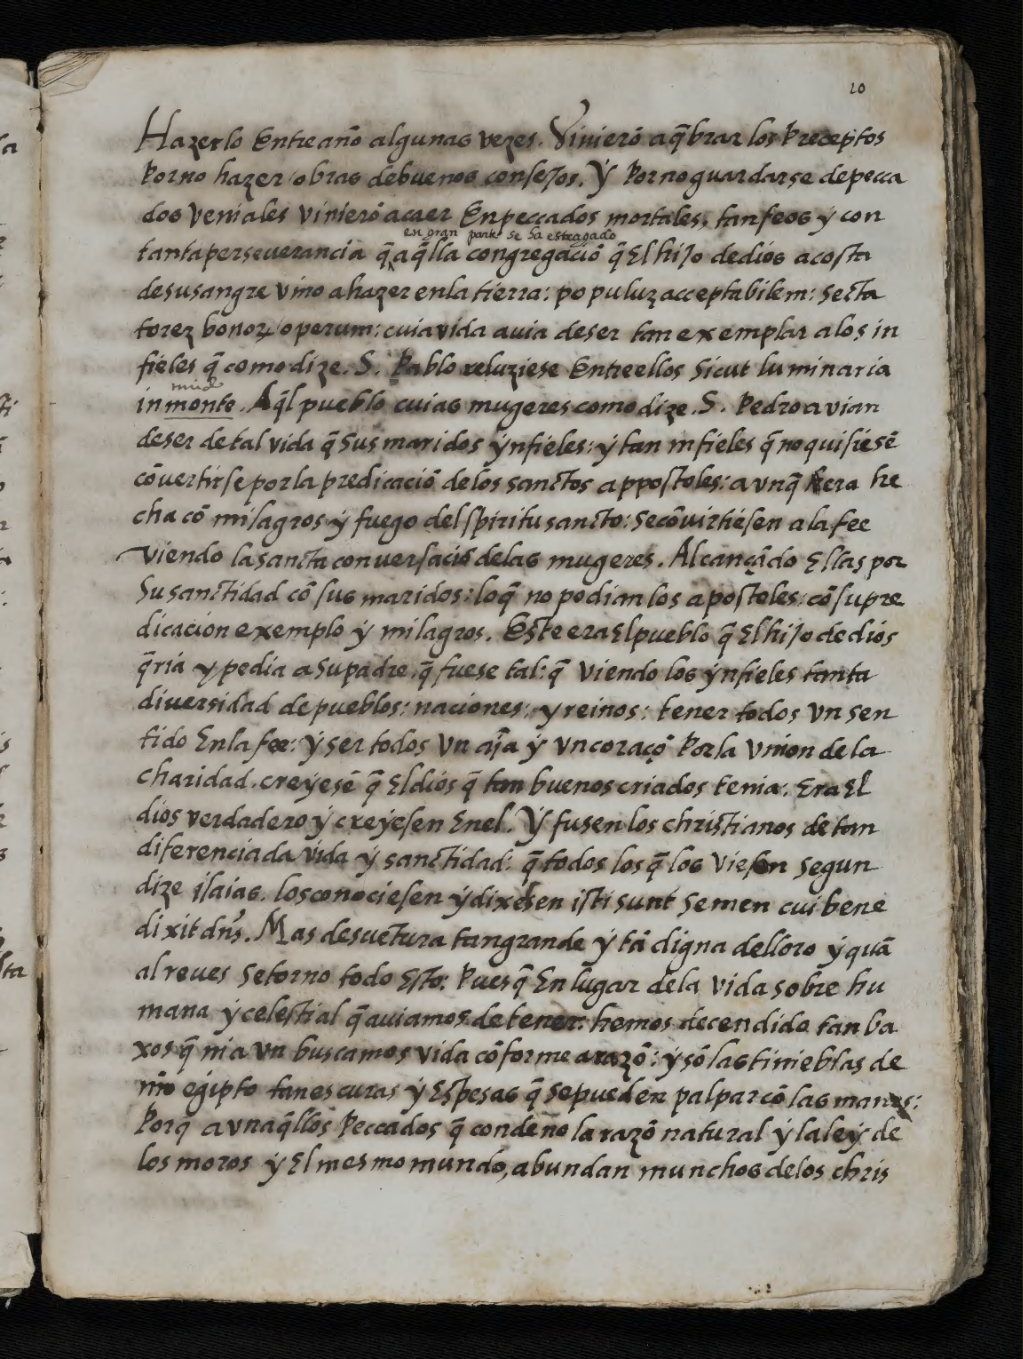 20
Hazerlo Entre año algunas vezes. Vinierō a q̄brar los Preceptos
Por no hazer obras de buenos consejos. Ý Por no guardarse de pecca
dos Veniales vinierō a caer En peccados mortales, tan feos ý con
en gran parte se ha estragado
tanta perseverancia q̄ a q̄lla congregaciō q̄ El hijo de dios a costa
de su sangre vino a hazer en la tierra: populuz acceptabilem: secta
torez bonoꝝ operum: cuia vida auia de ser tan exemplar a los in
fieles q̄ como dize. S. Pablo reluziese Entre ellos sicut luminaria
in monte. Aq̄l pueblo cuias mugeres como dize. S. Pedro avian
de ser de tal vida q̄ sus maridos ýnfieles: ý tan infieles q̄ no quisiesē
cōvertirse por la predicaciō de los sanctos appostoles: avnq̄ fuera he
cha cō milagros ý fuego del spiritu sancto: se cōvirtiesen a la fee
viendo la sancta conversaciō de las mugeres. Alcançādo Ellas por
su sanctidad cō sus maridos: lo q̄ no podian los apostoles: cō su pre
dicacion exemplo ý milagros. Este era El pueblo q̄ El hijo de dios
q̄ria y pedia a su padre. q̄ fuese tal: q̄ viendo los ýnfieles tanta
diuersidad de pueblos: naciones: y reinos: tener todos vn sen
tido En la fee: ý ser todos vn aīa ý vn coraçō Por la vnion de la
charidad. creyesē q̄ El dios q̄ tan buenos criados tenia. Era El
dios verdadero ý creyesen En el. Ý fusen los christianos de tan
diferenciada vida ý sanctidad: q̄ todos los q̄ los viesen segun
dize isaias. los conociesen ý dixesen isti sunt semen cui bene
dixit dn̄s. Mas desuētura tan grande ý tā digna de lloro ý quā
al reues se torno todo Esto. Pues q̄ En lugar de la vida sobre hu
mana ý celestial q̄ auiamos de tener: hemos decendido tan ba
xos q̄ ni a vn buscamos vida cōforme a razō: ý sō las tinieblas de
n̄ro egipto tan escuras ý Espesas q̄ se pueden palpar cō las manos:
Porq̄ avn aq̄llos Peccados q̄ condeno la razō natural ý la leý de
los moros ý El mesmo mundo, abundan munchos de los chris